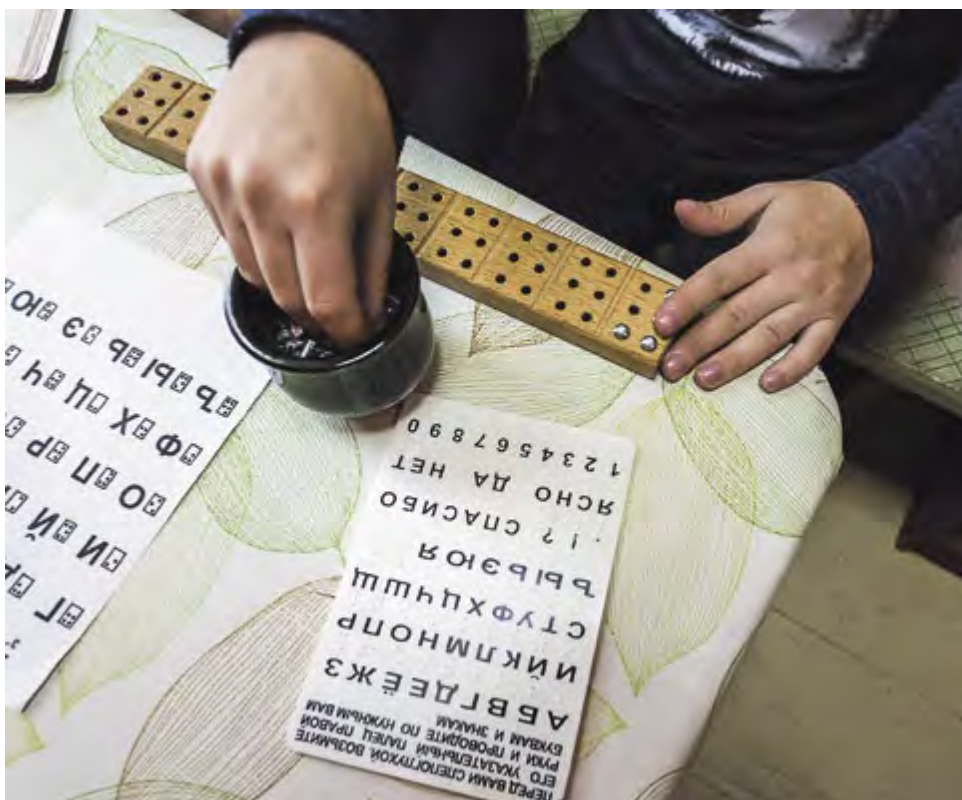 ПЕРЕД ВАМИ СЛЕПОГЛУХОЙ. ВОЗЬМИТЕ
ЕГО УКАЗАТЕЛЬНЫЙ ПАЛЕЦ ПРАВОЙ
РУКИ И ПРОВОДИТЕ ПО НУЖНЫМ ВАМ
БУКВАМ И ЗНАКАМ
А Б В Г Д Е Ё Ж З
И Й К Л М Н О П Р
С Т У Ф Х Ц Ч Ш Щ
Ъ Ы Ь Э Ю Я
. ! ? СПАСИБО
ЯСНО ДА НЕТ
1 2 3 4 5 6 7 8 9 0
Г
И Й
О П Р
Ф Х Ц Ч
Ъ Ы Ь Э Ю